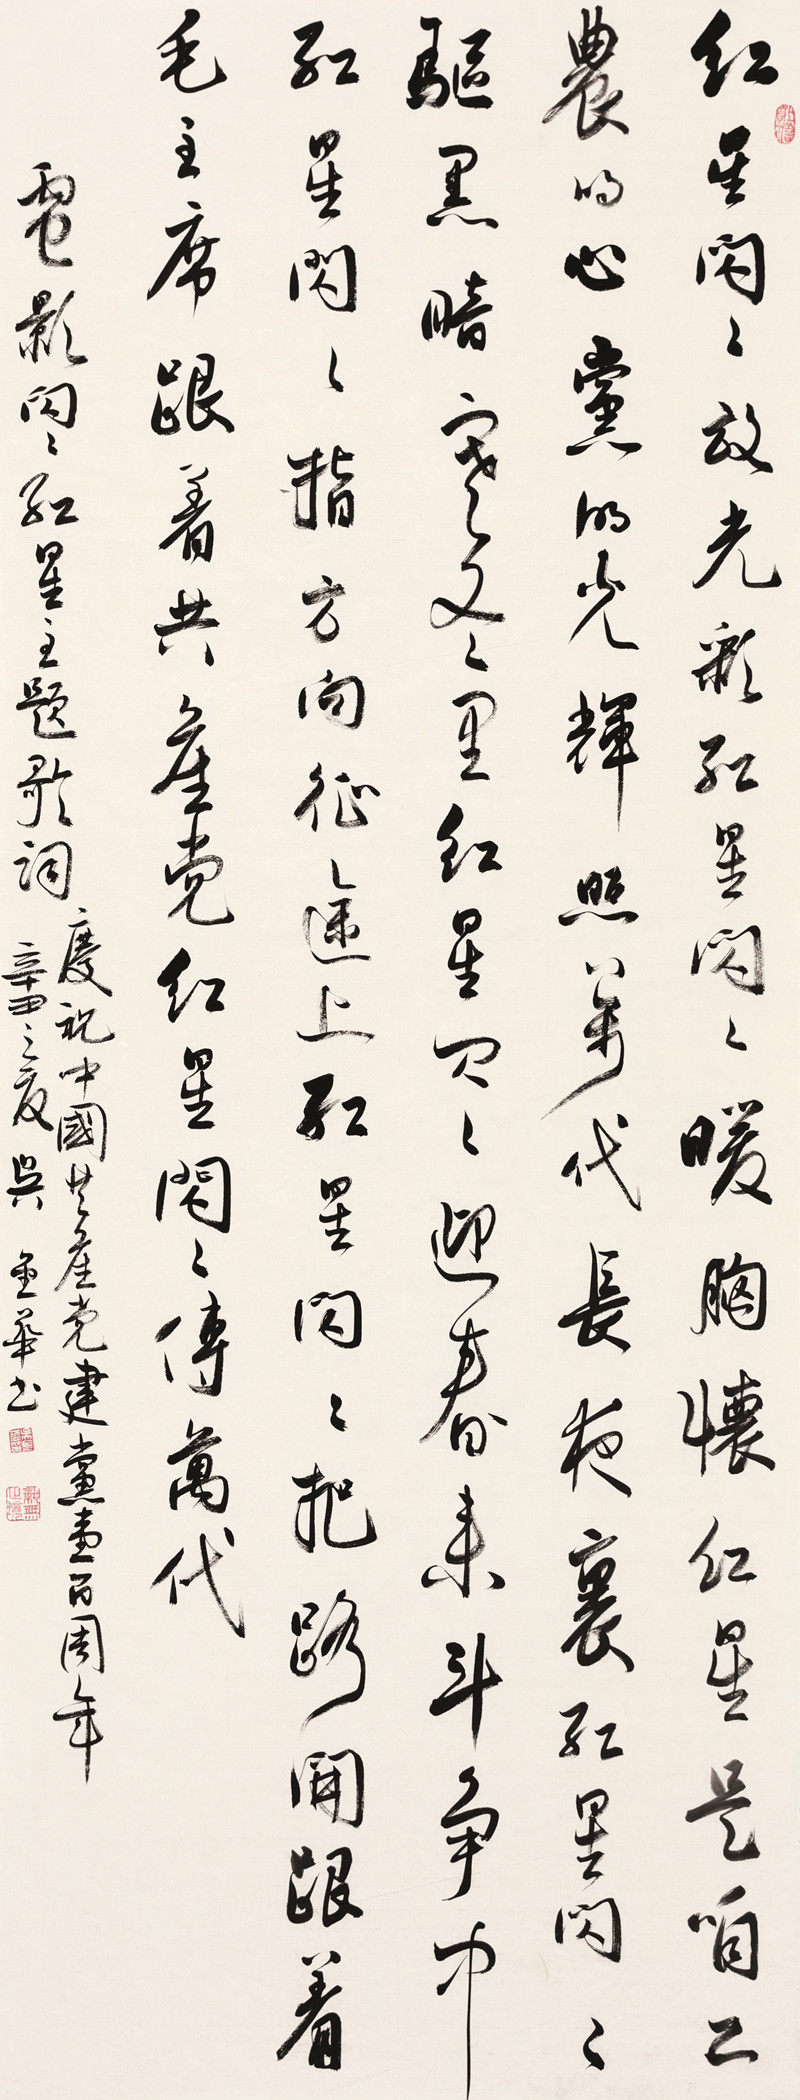 红星閃〻放光彩紅星閃〻暖胸懷红星是咱工
農的心黨的光輝照萬代長夜裏紅星閃〻
驅黑暗寒冬〻里红星閃〻迎春来斗争中
紅星閃〻指方向征途上紅星閃〻把路開跟着
毛主席跟着共產党红星閃〻傳萬代
電影閃〻紅星主題歌詞
慶祝中國共產党建黨壹百周年
辛丑之夏吳金華书